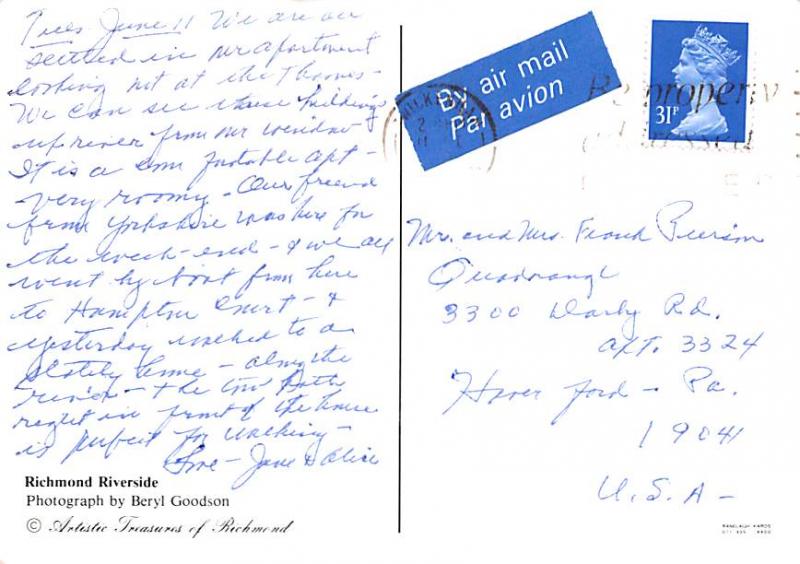 Tues June 11 We are all
settled in our apartment
looking out at the Thames -
We can see these buildings
up river from our window
It is a comfortable apt -
very roomy - Our friend
from Yorkshire was here for
the week-end - & we all
went by boat from here
to Hampton Court - &
yesterday walked to a
stately home - along the
river - the tow path
right in front of the house
is perfect for walking -
Love - Jane &
Richmond Riverside
Photograph by Beryl Goodson
© Artistic Treasures of Richmond
By air mail
Par avion
31P
Be properly
addressed
Mr. and Mrs. Frank Pierson
Quadrangle
3300 Darby Rd.
apt. 3324
Haverford - Pa.
19041
U.S.A -
RANELAGH CARDS